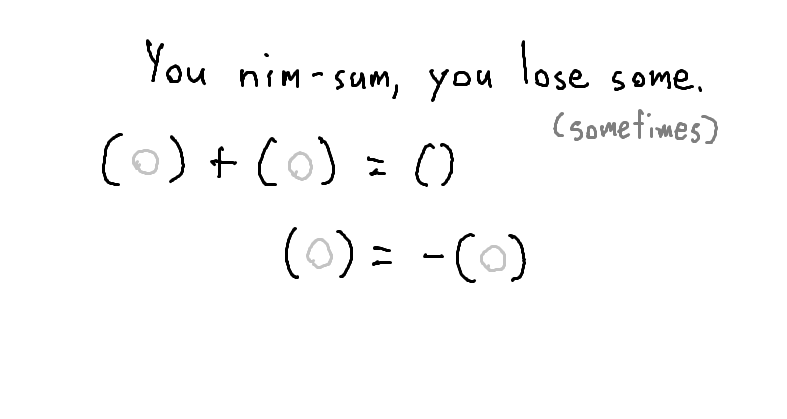 You nim-sum, you lose some.
(sometimes)
(○) + (○) = ()
(○) = -(○)